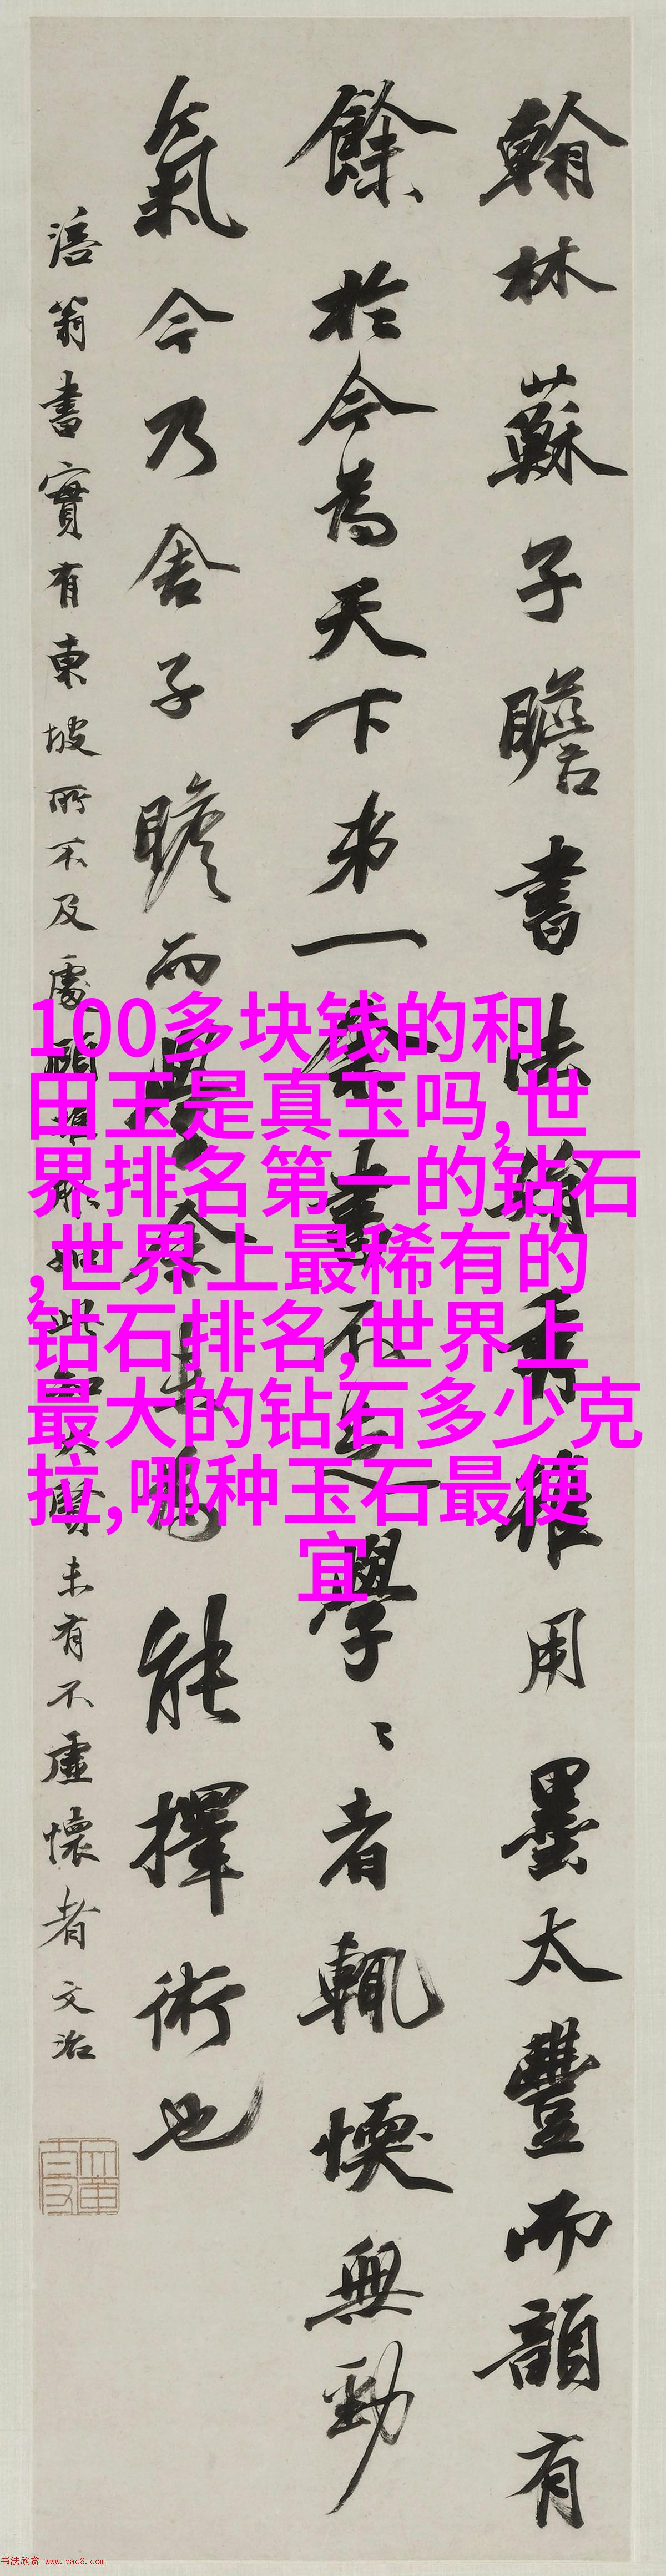 翰林蘇子瞻書法娟秀雖用墨太豐而韻有
餘於今為天下弟一余書不足學〻者輒愞無勁
氣今乃舍子瞻而學余未為能擇術也
涪翁書實有東坡所不及處顧推服如此知大賢未有不虛懷者文治
100多块钱的和
田玉是真玉吗,世
界排名第一的钻石
,世界上最稀有的
钻石排名,世界上
最大的钻石多少克
拉,哪种玉石最便
宜
书法欣赏 www.yac8.com